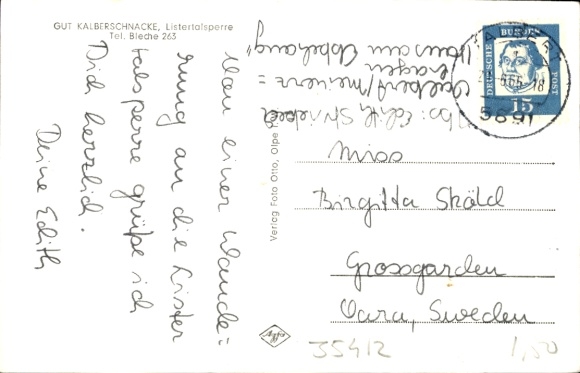 GUT KALBERSCHNACKE, Listertalsperre
Tel. Bleche 263
Von einer Wande=
rung an die Lister
talsperre grüße ich
Dich herzlich.
Deine Edith
Verlag Foto Otto, Olpe
Abs: Edith
Valbert/meinerz=
hagen
"Haus am Ebbehang"
DEUTSCHE BUNDESPOST
15
VALBERT
18
5891
Miss
Birgitta Sköld
Grossgården
Vara, Sweden
35412
1,50